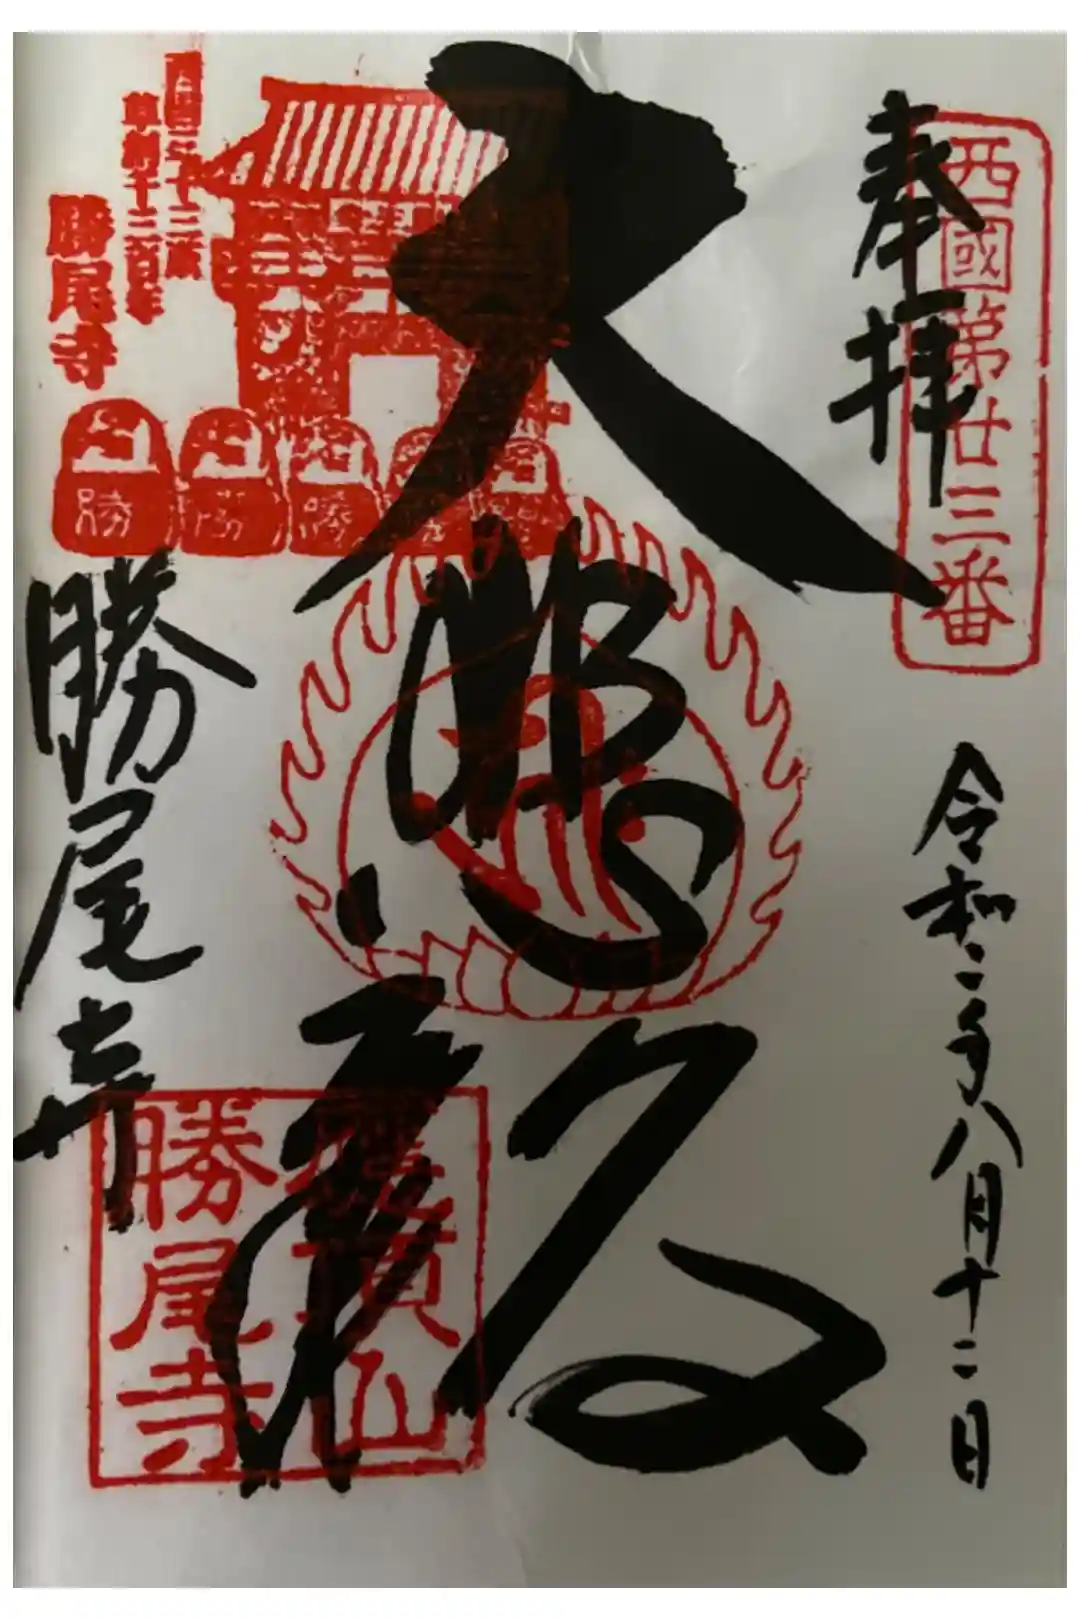 奉拝
西國第廿三番
令和二年八月十二日
大悲殿
勝尾寺
西国三十三所
草創千三百年
勝尾寺
勝
勝
勝
應頂山
勝尾寺